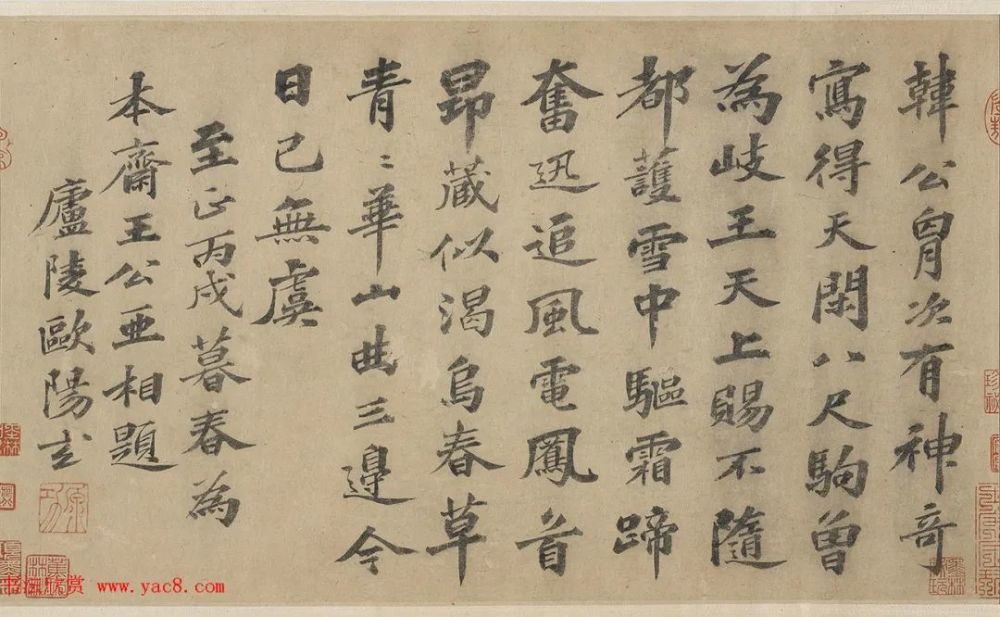 韓公胷次有神奇
寫得天閑八尺駒曾
為岐王天上賜不隨
都護雪中驅霜蹄
奮迅追風電鳳首
昂藏似渴烏春草
青〻華山曲三邊今
日已無虞
至正丙戌暮春為
本齋王公亞相題
廬陵歐陽玄
書画欣赏 www.yac8.com